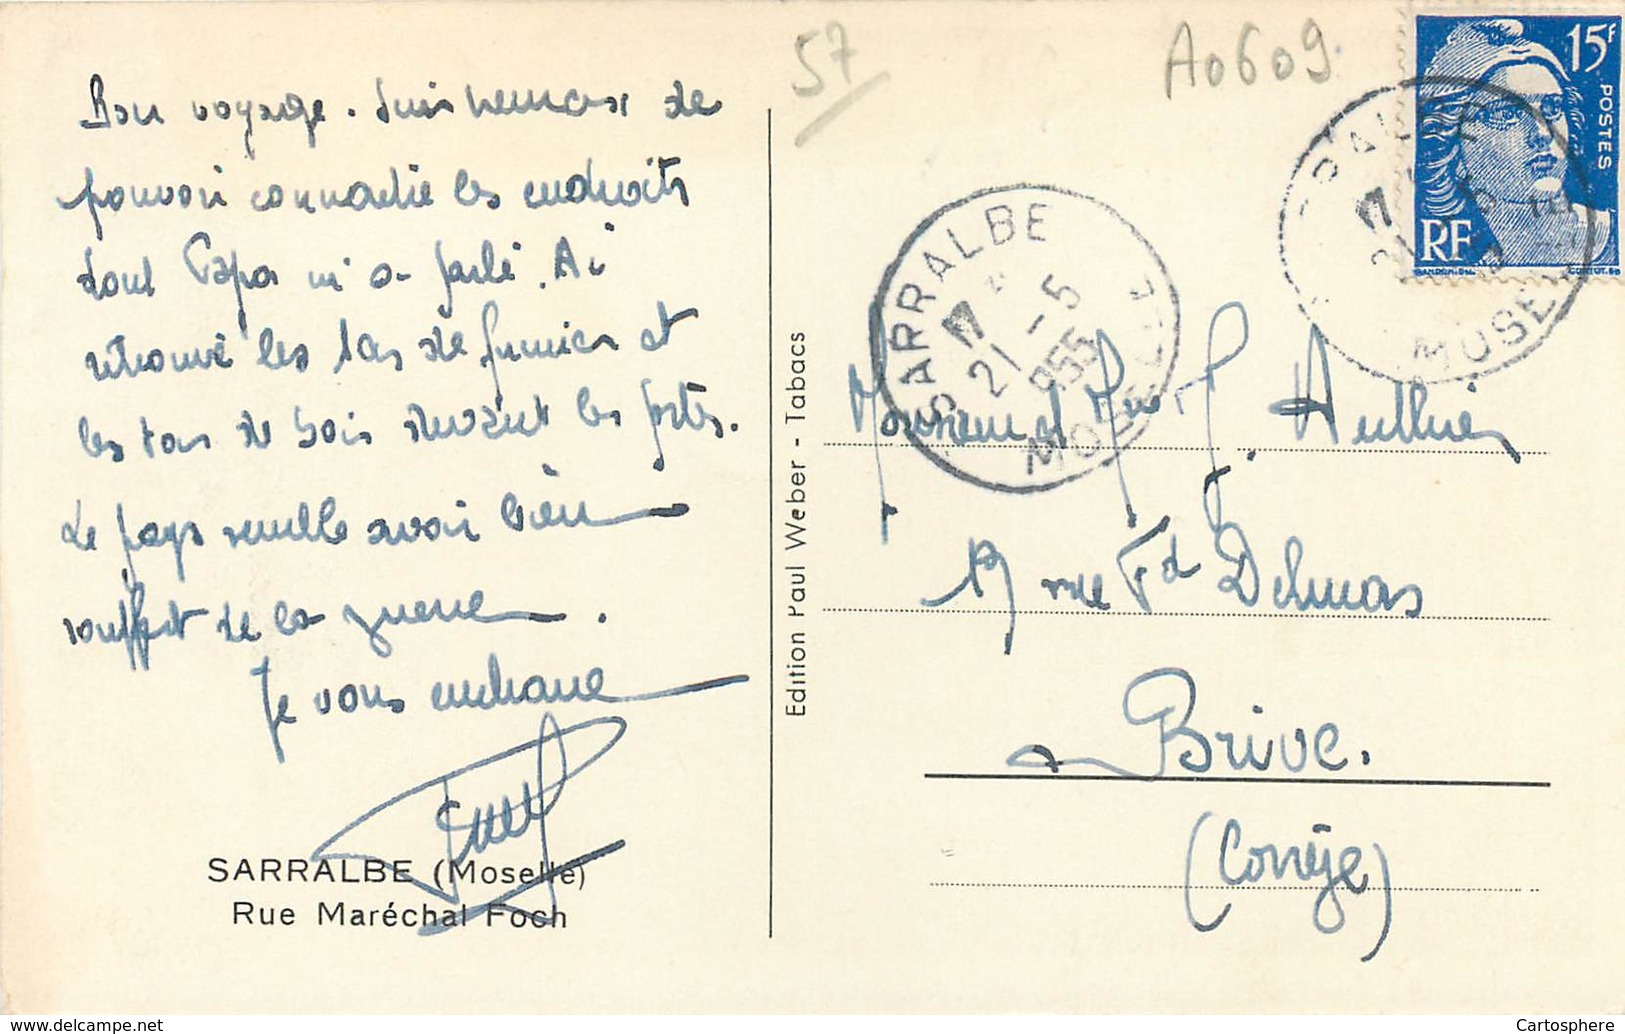 Bon voyage. Suis heureux de
pouvoir connaître les endroits
dont Papa m'a parlé. Ai
retrouvé les tas de fumier et
les tas de bois devant les portes.
Le pays semble avoir bien
souffert de la guerre.
Je vous embrasse
SARRALBE (Moselle)
Rue Maréchal Foch
Edition Paul Weber - Tabacs
57
A0609
15F
POSTES
RF
SARRALBE
17
21 -5
955
MOSELLE
17
21
MOSE
Monsieur et Mme
19 rue Fd Delmas
Brive.
(Corrèze)
Cartosphere